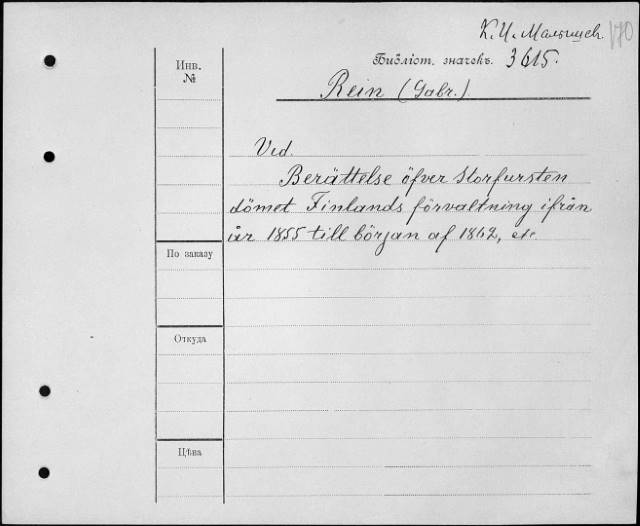 К. И. Малышев.
170
Библіот. значекъ. 3615.
Инв.
№
Rein (Gabr.)
Vid.
Berättelse öfver Storfursten
dömet Finlands förvaltning ifrån
år 1855 till början af 1862, etc.
По заказу
Откуда
Цѣна